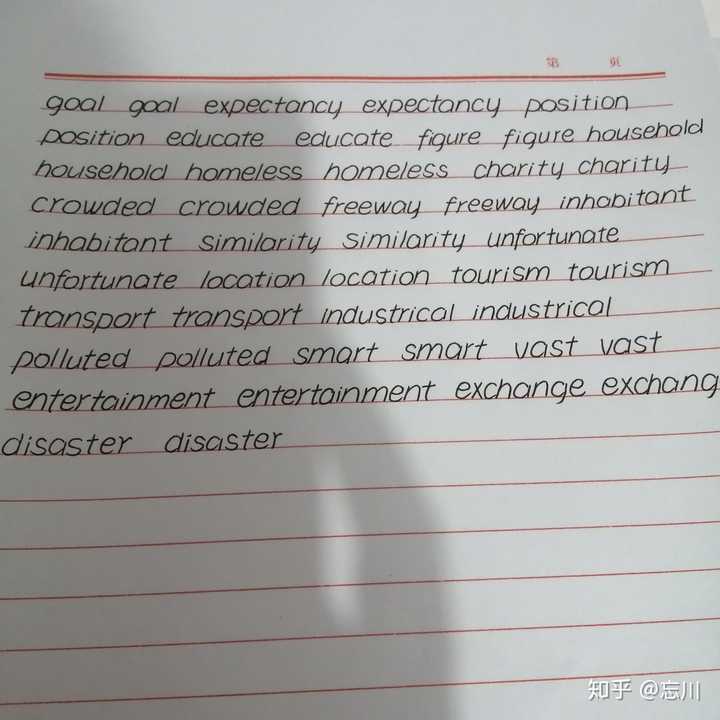 第 页
goal goal expectancy expectancy position
position educate educate figure figure household
household homeless homeless charity charity
crowded crowded freeway freeway inhabitant
inhabitant similarity similarity unfortunate
unfortunate location location tourism tourism
transport transport industrical industrical
polluted polluted smart smart vast vast
entertainment entertainment exchange exchang
disaster disaster
知乎 @忘川